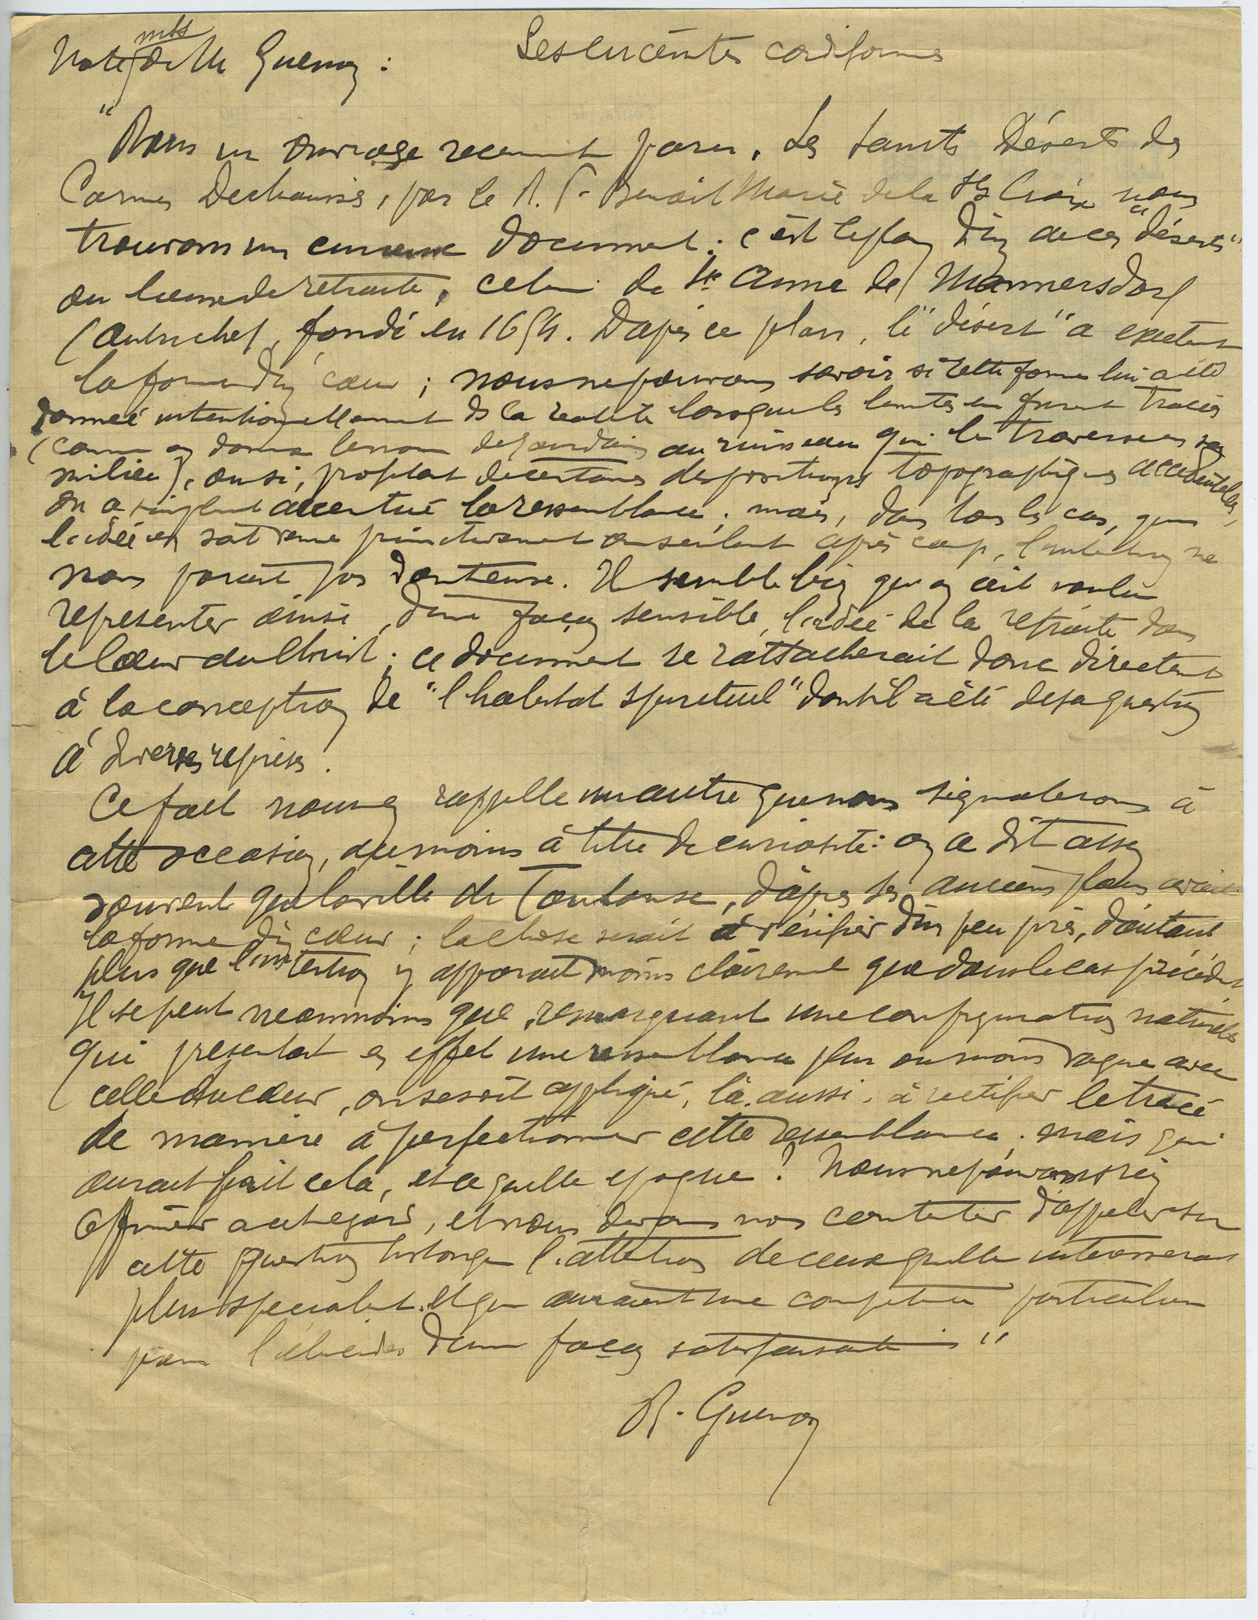 Les enceintes cordiformes
Note mss de M Guenon :
"Dans un ouvrage recement paru, Les Saints Déserts des
Carmes Dechaussés, par le R. P. Benoît Marie de la Ste Croix nous
trouvons un curieux document : c'est le plan d'un de ces "déserts"
ou lieux de retraite, celui de Ste Anne de Mannersdorf
(Autriche), fondé en 1654. D'après ce plan, le "désert" a exactement
la forme d'un cœur ; nous ne pouvons savoir si cette forme lui a été
donnée intentionellement ds la realité lorsque les limites en furent tracées
(comme on donna le nom de Jourdain au ruisseau qui le traverse en son
milieu), ou si, profitant de certaines dispositions topographiques accidentelles,
on a simplement accentué la ressemblance ; mais, dans tous les cas, que
l'idée en soit venue primitivement ou seulement après coup, l'intention ne
nous parait pas douteuse. Il semble bien qu'on ait voulu
representer ainsi, d'une façon sensible, l'idée de la retraite dans
le Cœur du Christ ; ce document se rattacherait donc directement
à la conception de "l'habitat spirituel" dont il a été deja question
à diverses reprises.
Ce fait nous en rappelle un autre que nous signalerons à
cette occasion, du moins à titre de curiosité : on a dit assez
souvent que la ville de Toulouse, d'après ses anciens plans avait
la forme d'un cœur ; la chose serait à vérifier d'un peu près, d'autant
plus que l'intention y apparait moins clairement que dans le cas précédent
Il se peut neanmoins que, remarquant une configuration naturelle
qui presentait en effet une ressemblance plus ou moins vague avec
celle du cœur, on se soit appliqué, là aussi, à rectifier le tracé
de maniere à perfectionner cette ressemblance ; mais qui
aurait fait cela, et a quelle epoque ? Nous ne pouvons rien
affirmer a cet egard, et nous devons nos contenter d'appeler sur
cette question historique l'attention de ceux qu'elle interesserait
plus specialement et qui auraient une competence particuliere
pour l'élucider d'une façon satisfaisante"
R. Guenon